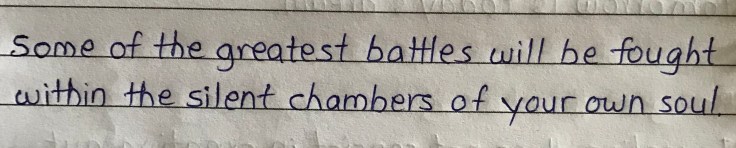 Some of the greatest battles will be fought
within the silent chambers of your own soul.